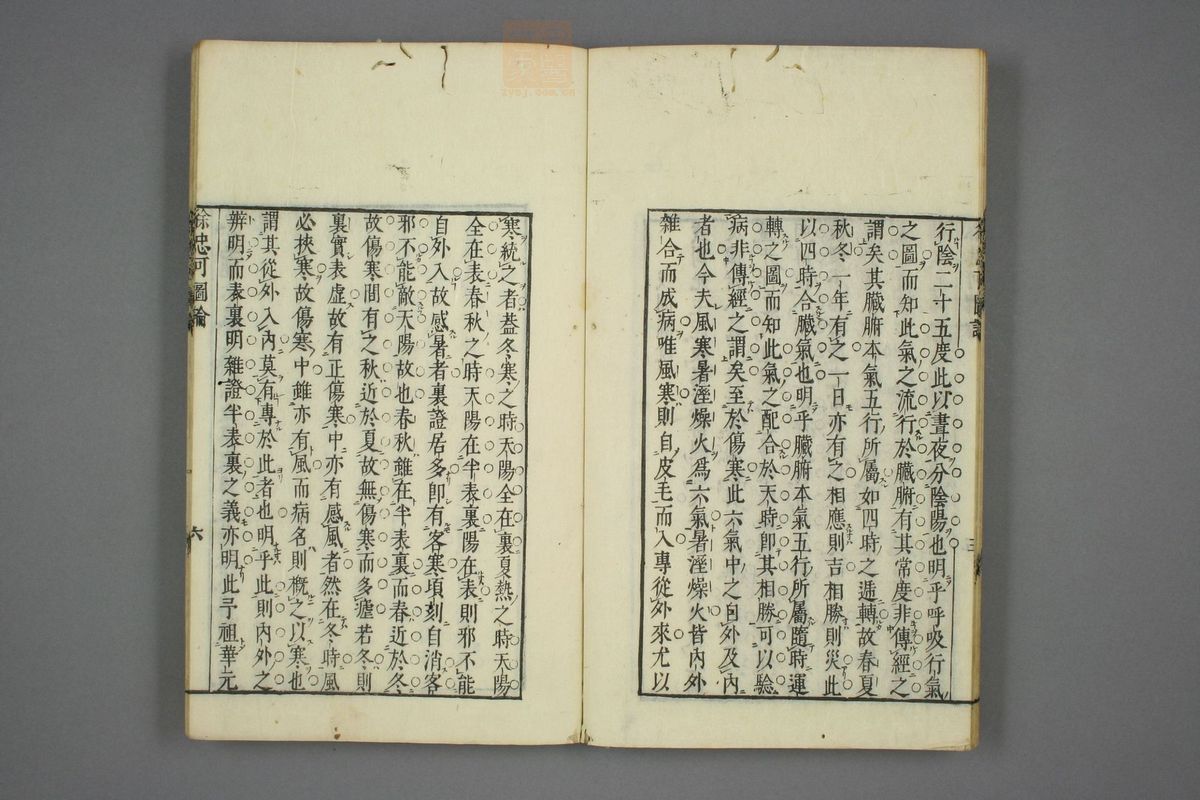 行陰二十五度此以晝夜分陰陽也明乎呼吸行氣
之圖而知此氣之流行於臟腑有其常度非傳經之
謂矣其臟腑本氣五行所屬如四時之遞轉故春夏
秋冬一年有之一日亦有之相應則吉相勝則災此
以四時合臟氣也明乎臟腑本氣五行所屬隨時運
轉之圖而知此氣之配合於天時卽其相勝可以驗
病非傳經之謂矣至於傷寒此六氣中之自外及內
者也今夫風寒暑溼燥火爲六氣暑溼燥火皆內外
雜合而成病唯風寒則自皮毛而入專從外來尤以
寒統之者葢冬寒之時天陽全在裏夏熱之時天陽
全在表春秋之時天陽在半表裏陽在表則邪不能
自外入故感暑者裏證居多卽有客寒頃刻自消客
邪不能敵天陽故也春秋雖在半表裏而春近於冬
故傷寒間有之秋近於夏故無傷寒而多瘧若冬則
裏實表虛故有正傷寒中亦有感風者然在冬時風
必挾寒故傷寒中雖亦有風而病名則概之以寒也
謂其從外入內莫有專於此者也明乎此則內外之
辨明而表裏明雜證半表裏之義亦明此予祖華元
徐忠可圖論
六
zysj.com.cn